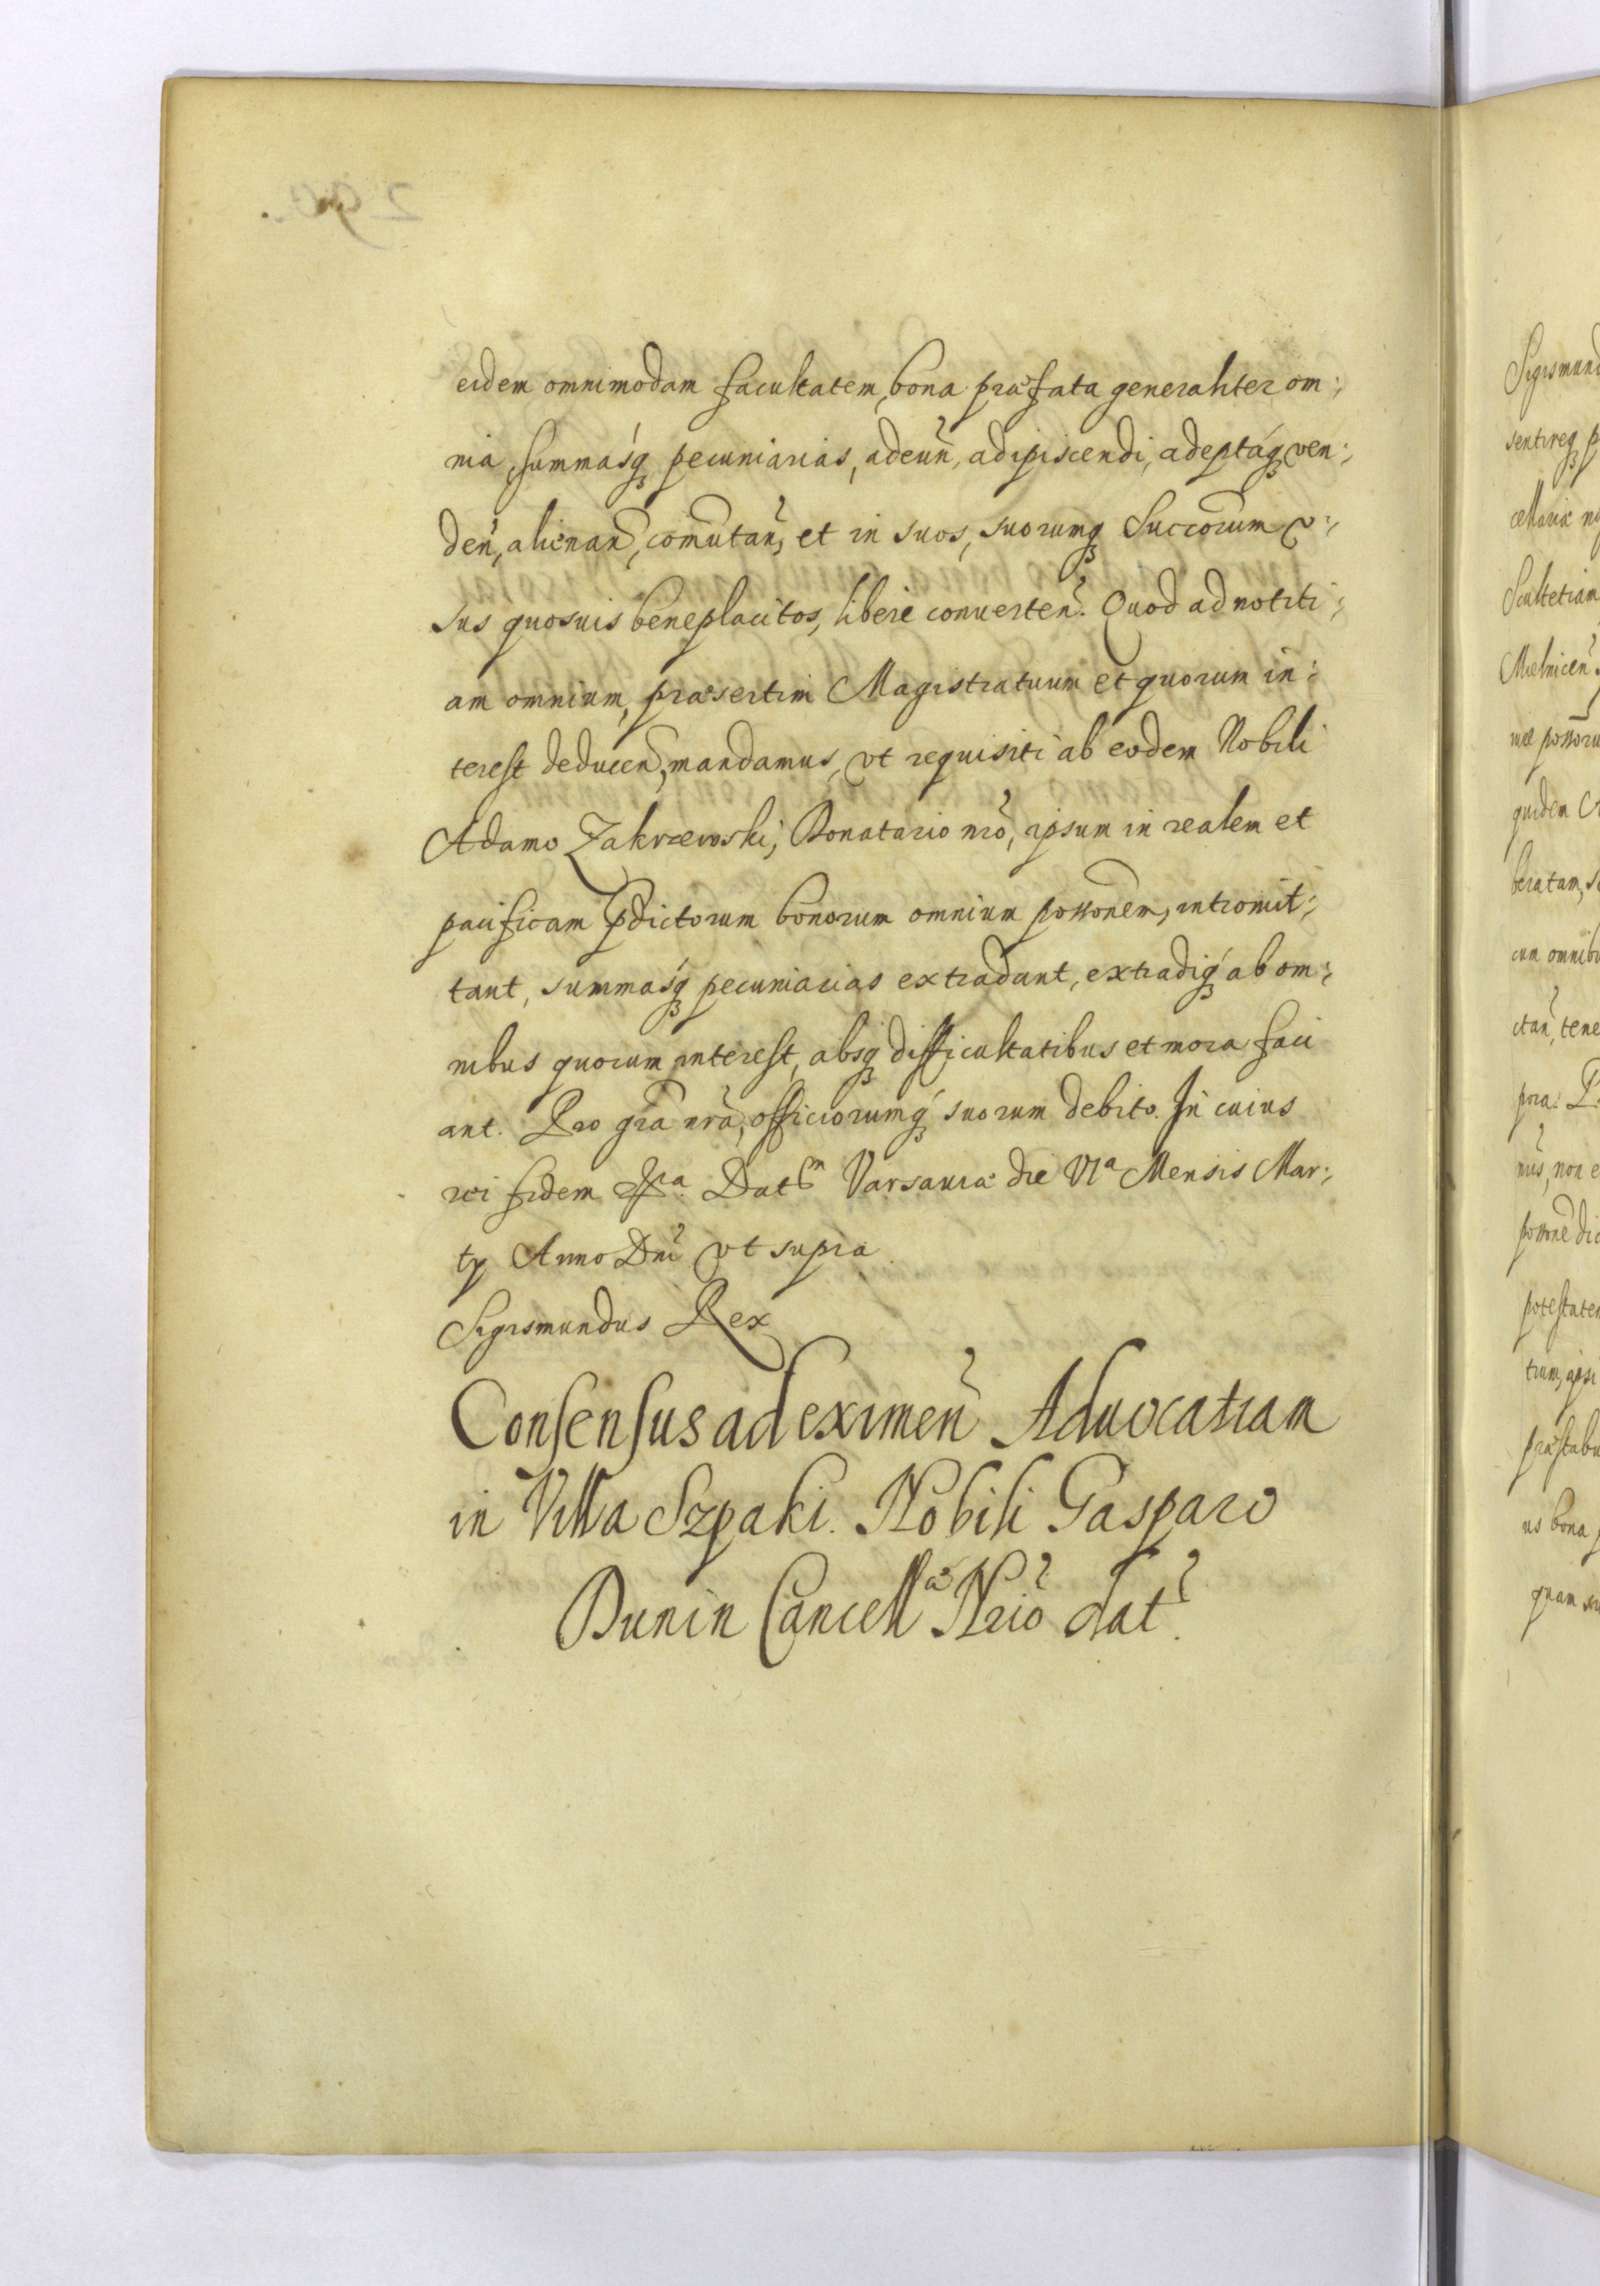 eidem omnimodam facultatem, bona præfata generaliter om:,
nia, summasq́ꝫ pecuniarias, adeun̄, adipiscendi, adeptáqꝫ ven:,
den̄, alienan̄, com̄utan̄, et in suos, suorumqꝫ Succorum v:,
sus quosuis beneplacitos, libere conuerten̄. Quod ad notiti:,
am omnium, præsertim Magistratuum et quorum in:,
terest deducen̄, mandamus, vt requisiti ab eodem Nobili
Adamo Zakrzewski, Donatario nrō, ipsum in realem et
pacificam pdictorum bonorum omnium possonem, intromit:,
tant, summasq́ꝫ pecuniarias extradant, extradiq́ꝫ ab om:,
nibus quorum interest, absqꝫ difficultatibus et mora faci
ant. Pro grā nrā, officiorumq́ꝫ suorum debito. In cuius
rei fidem Dat Varsauiæ die VIa Mensis Mar:,
ty Anno Dnī vt supra
Sigismundus Rex
Consensus ad eximen̄ Aduocatiam
in Villa Szpaki. Nobili Gasparo
Dunin Cancellæ Nrio dat.
Sigismund
sentireqꝫ p
cellariæ
Scultetiam
Mielnicen̄
quidem
beratam,
cum omnibu
ctan̄, tene
pora. P
nus, non e
possone dic
potestatem
præstabu
us bona
quam
290.